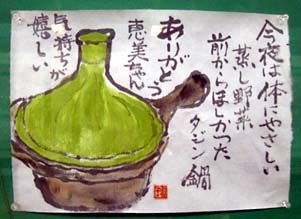 今夜は体にやさしい
蒸し野菜
前からほしかった
タジン鍋
ありがとう
恵美ちゃん
気持ちが
嬉しい